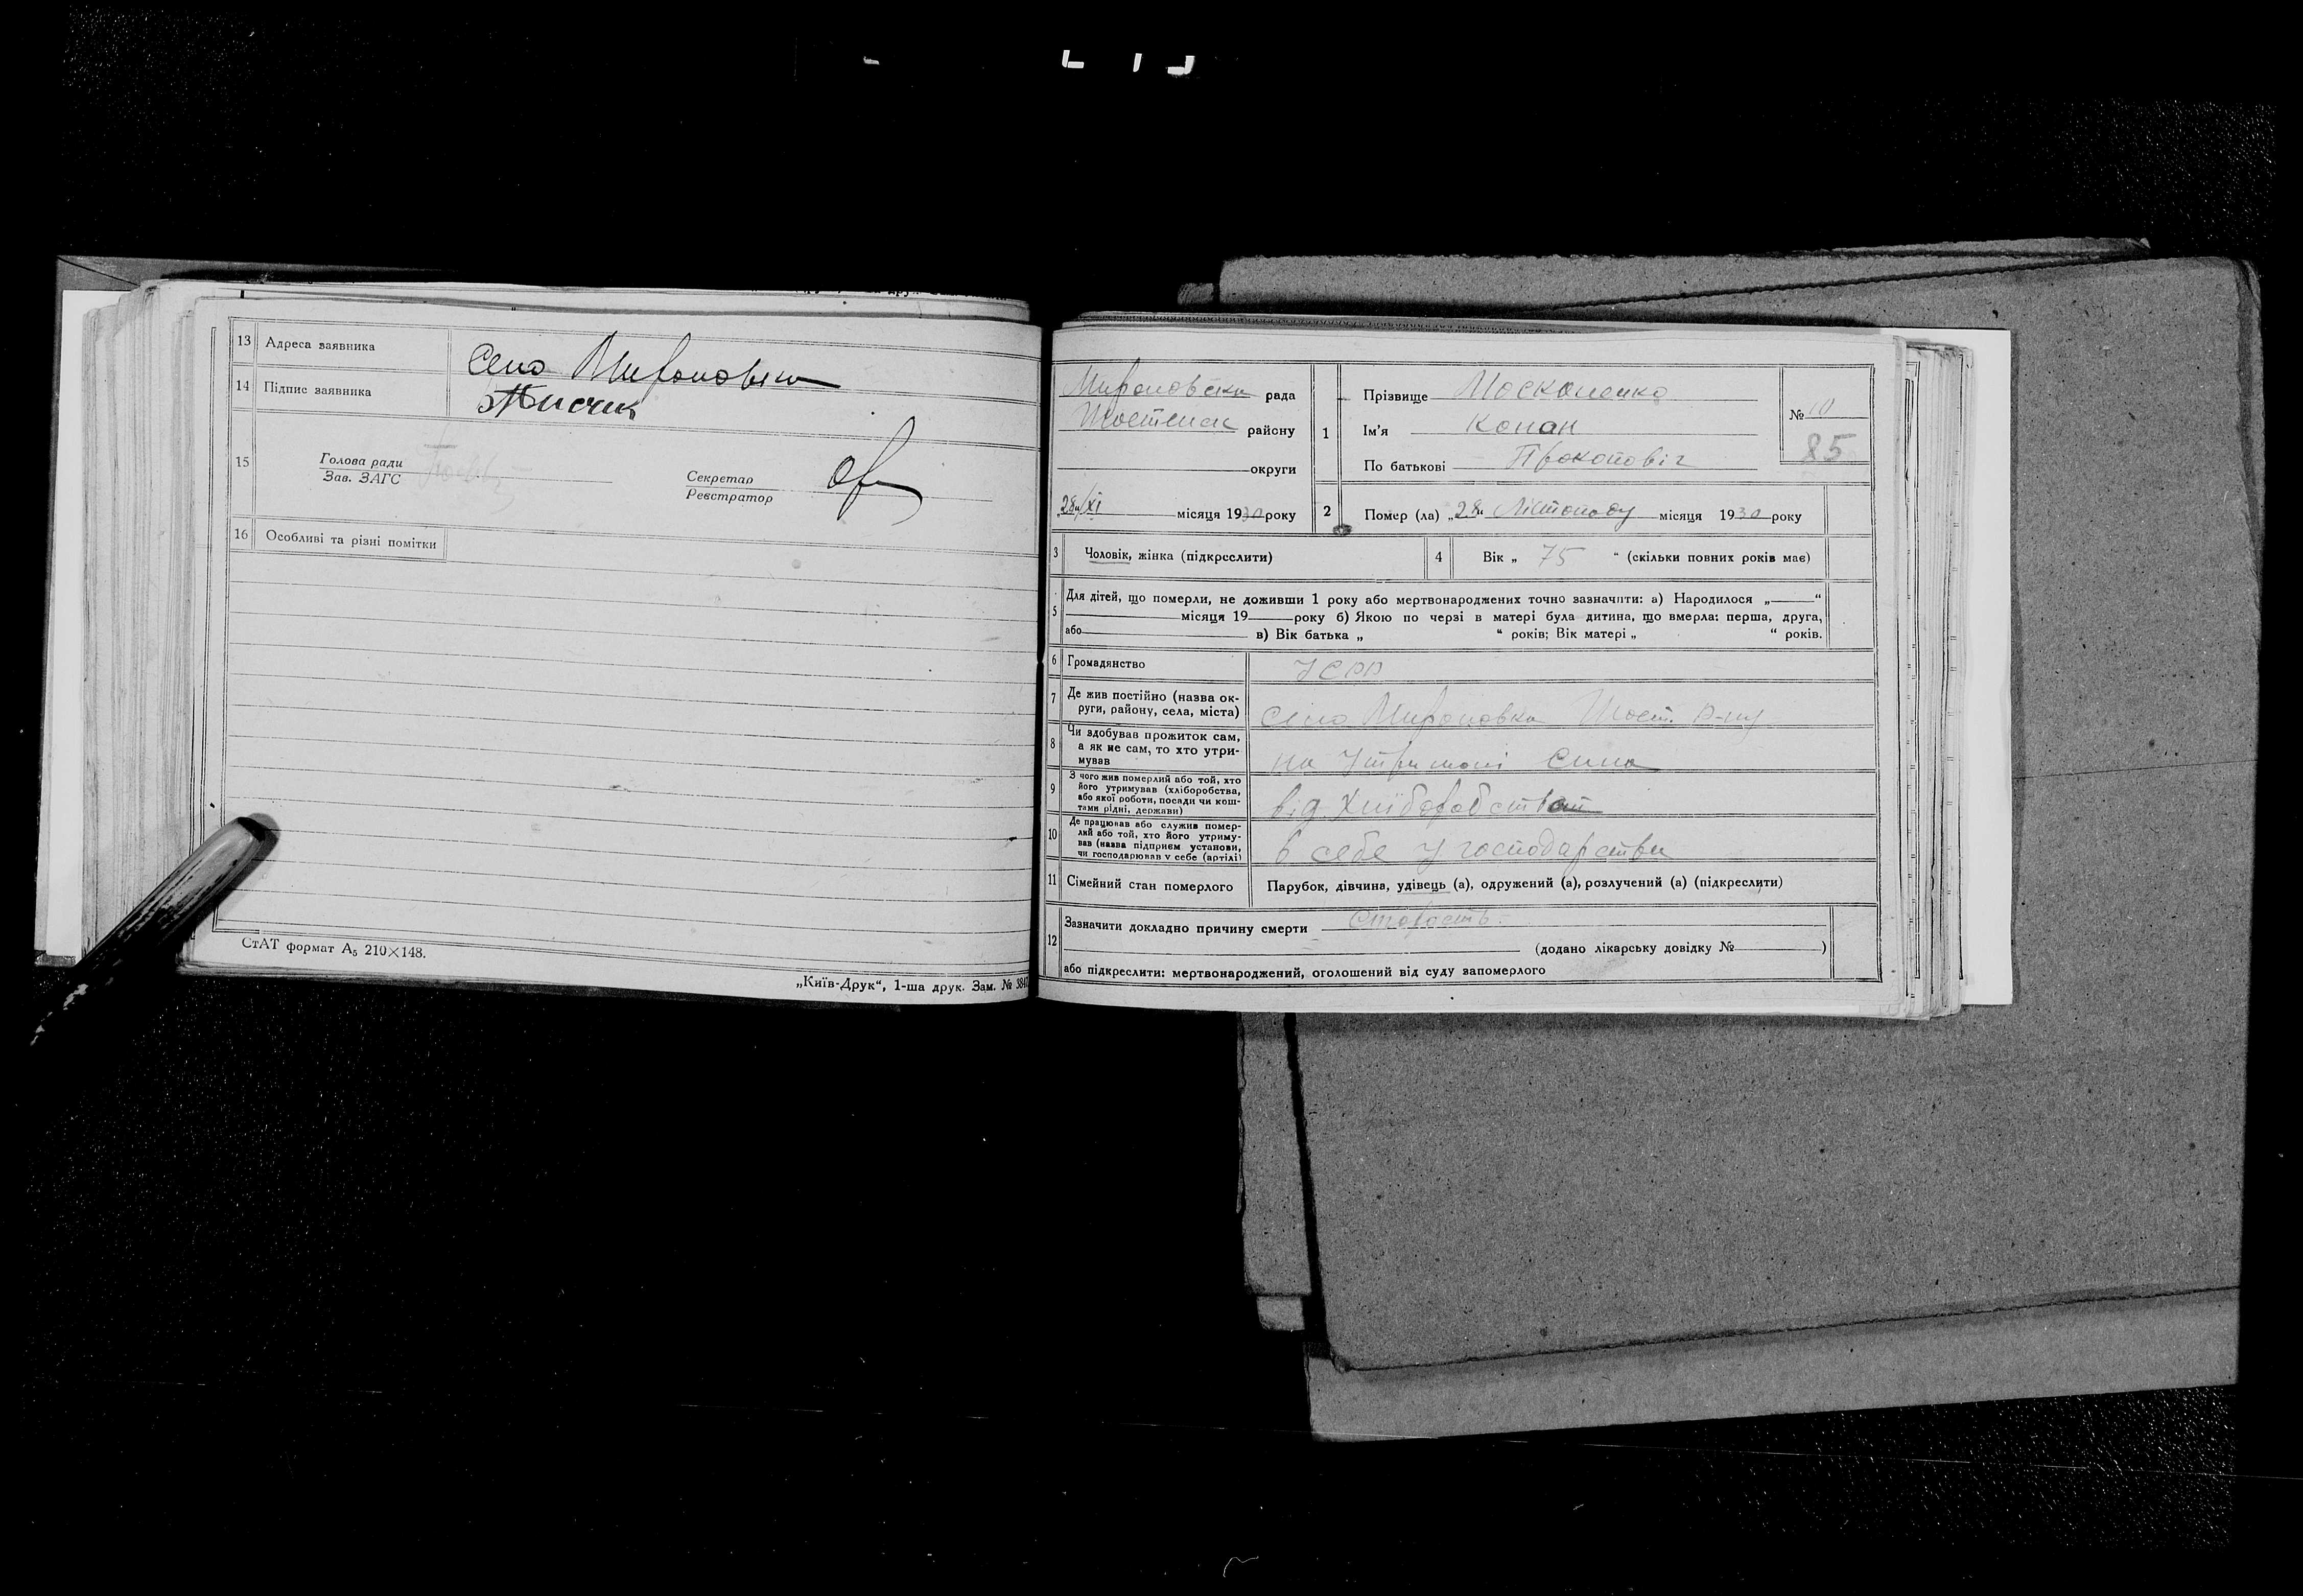 13 Адреса заявника Село Мироновка
14 Підпис заявника
15 Голова ради
Зав. ЗАГС
Секретар
Реєстратор
16 Особливі та різні помітки
СтАТ формат А₅ 210×148.
„Київ-Друк“, 1-ша друк. Зам. №
Мироновська рада
районy
округи
„28“/XI місяця 1930 року
1 Прізвище Москаленко
Ім'я Конан
По батькові Прокоповіч
№ 10
85
2 Помер (ла) „28“ Лістопаду місяця 1930 року
3 Чоловік, жінка (підкреслити)
4 Вік „ 75 “ (скільки повних років має)
5 Для дітей, що померли, не доживши 1 року або мертвонароджених точно зазначити: а) Народилося „ “
місяця 19 року б) Якою по черзі в матері була дитина, що вмерла: перша, друга,
або в) Вік батька „ “ років; Вік матері „ “ років.
6 Громадянство УСРР
7 Де жив постійно (назва ок-
руги, району, села, міста) село Мироновка Шост. р-ну
8 Чи здобував прожиток сам,
а як не сам, то хто утри-
мував на утримані сина
9 З чого жив померлий або той, хто
його утримував (хліборобства,
або якої роботи, посади чи кош-
тами рідні, держави) від
10 Де працював або служив помер-
лий або той, хто його утриму-
вав (назва підприєм установи,
чи господарював у себе (артілі) в себе у господарстви
11 Сімейний стан померлого Парубок, дівчина, удівець (а), одружений (а), розлучений (а) (підкреслити)
12 Зазначити докладно причину смерти Старость
(додано лікарську довідку № )
або підкреслити: мертвонароджений, оголошений від суду запомерлого